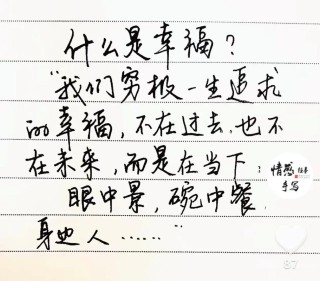 什么是幸福？
"我们穷极一生追求
的幸福，不在过去，也不
在未来，而是在当下：
眼中景，碗中餐
身边人……"
情感
手写
67